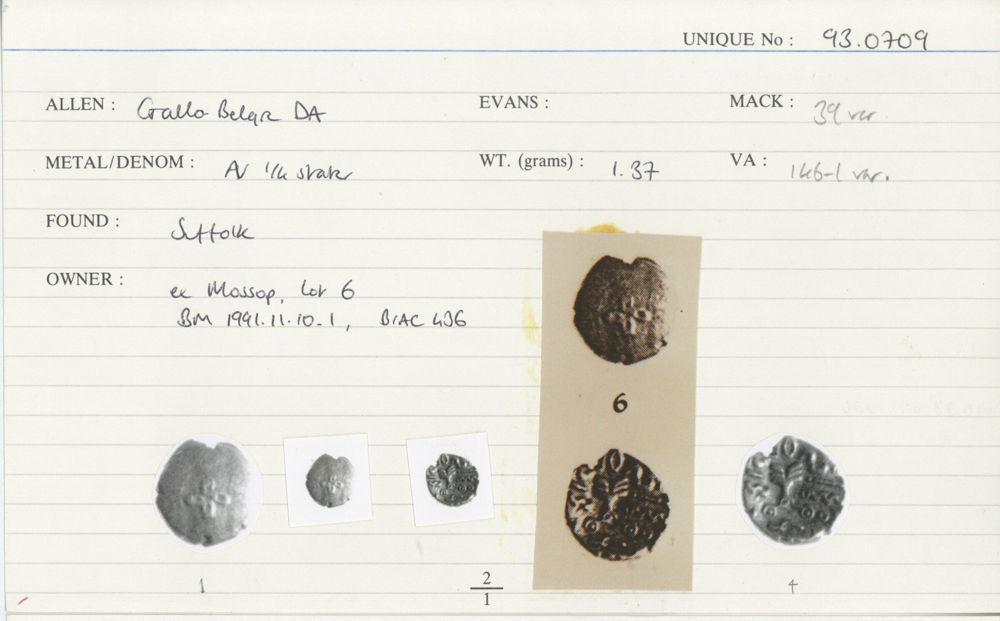 UNIQUE No : 93.0709
ALLEN : Gallo-Belgic DA EVANS : MACK : 39 var.
METAL/DENOM : AV 1/4 stater WT. (grams) : 1.37 VA : 146-1 var.
FOUND : Suffolk
OWNER : ex Mossop, Lot 6
BM 1991.11.10.1, BIAC 436
6
1 2/1 4